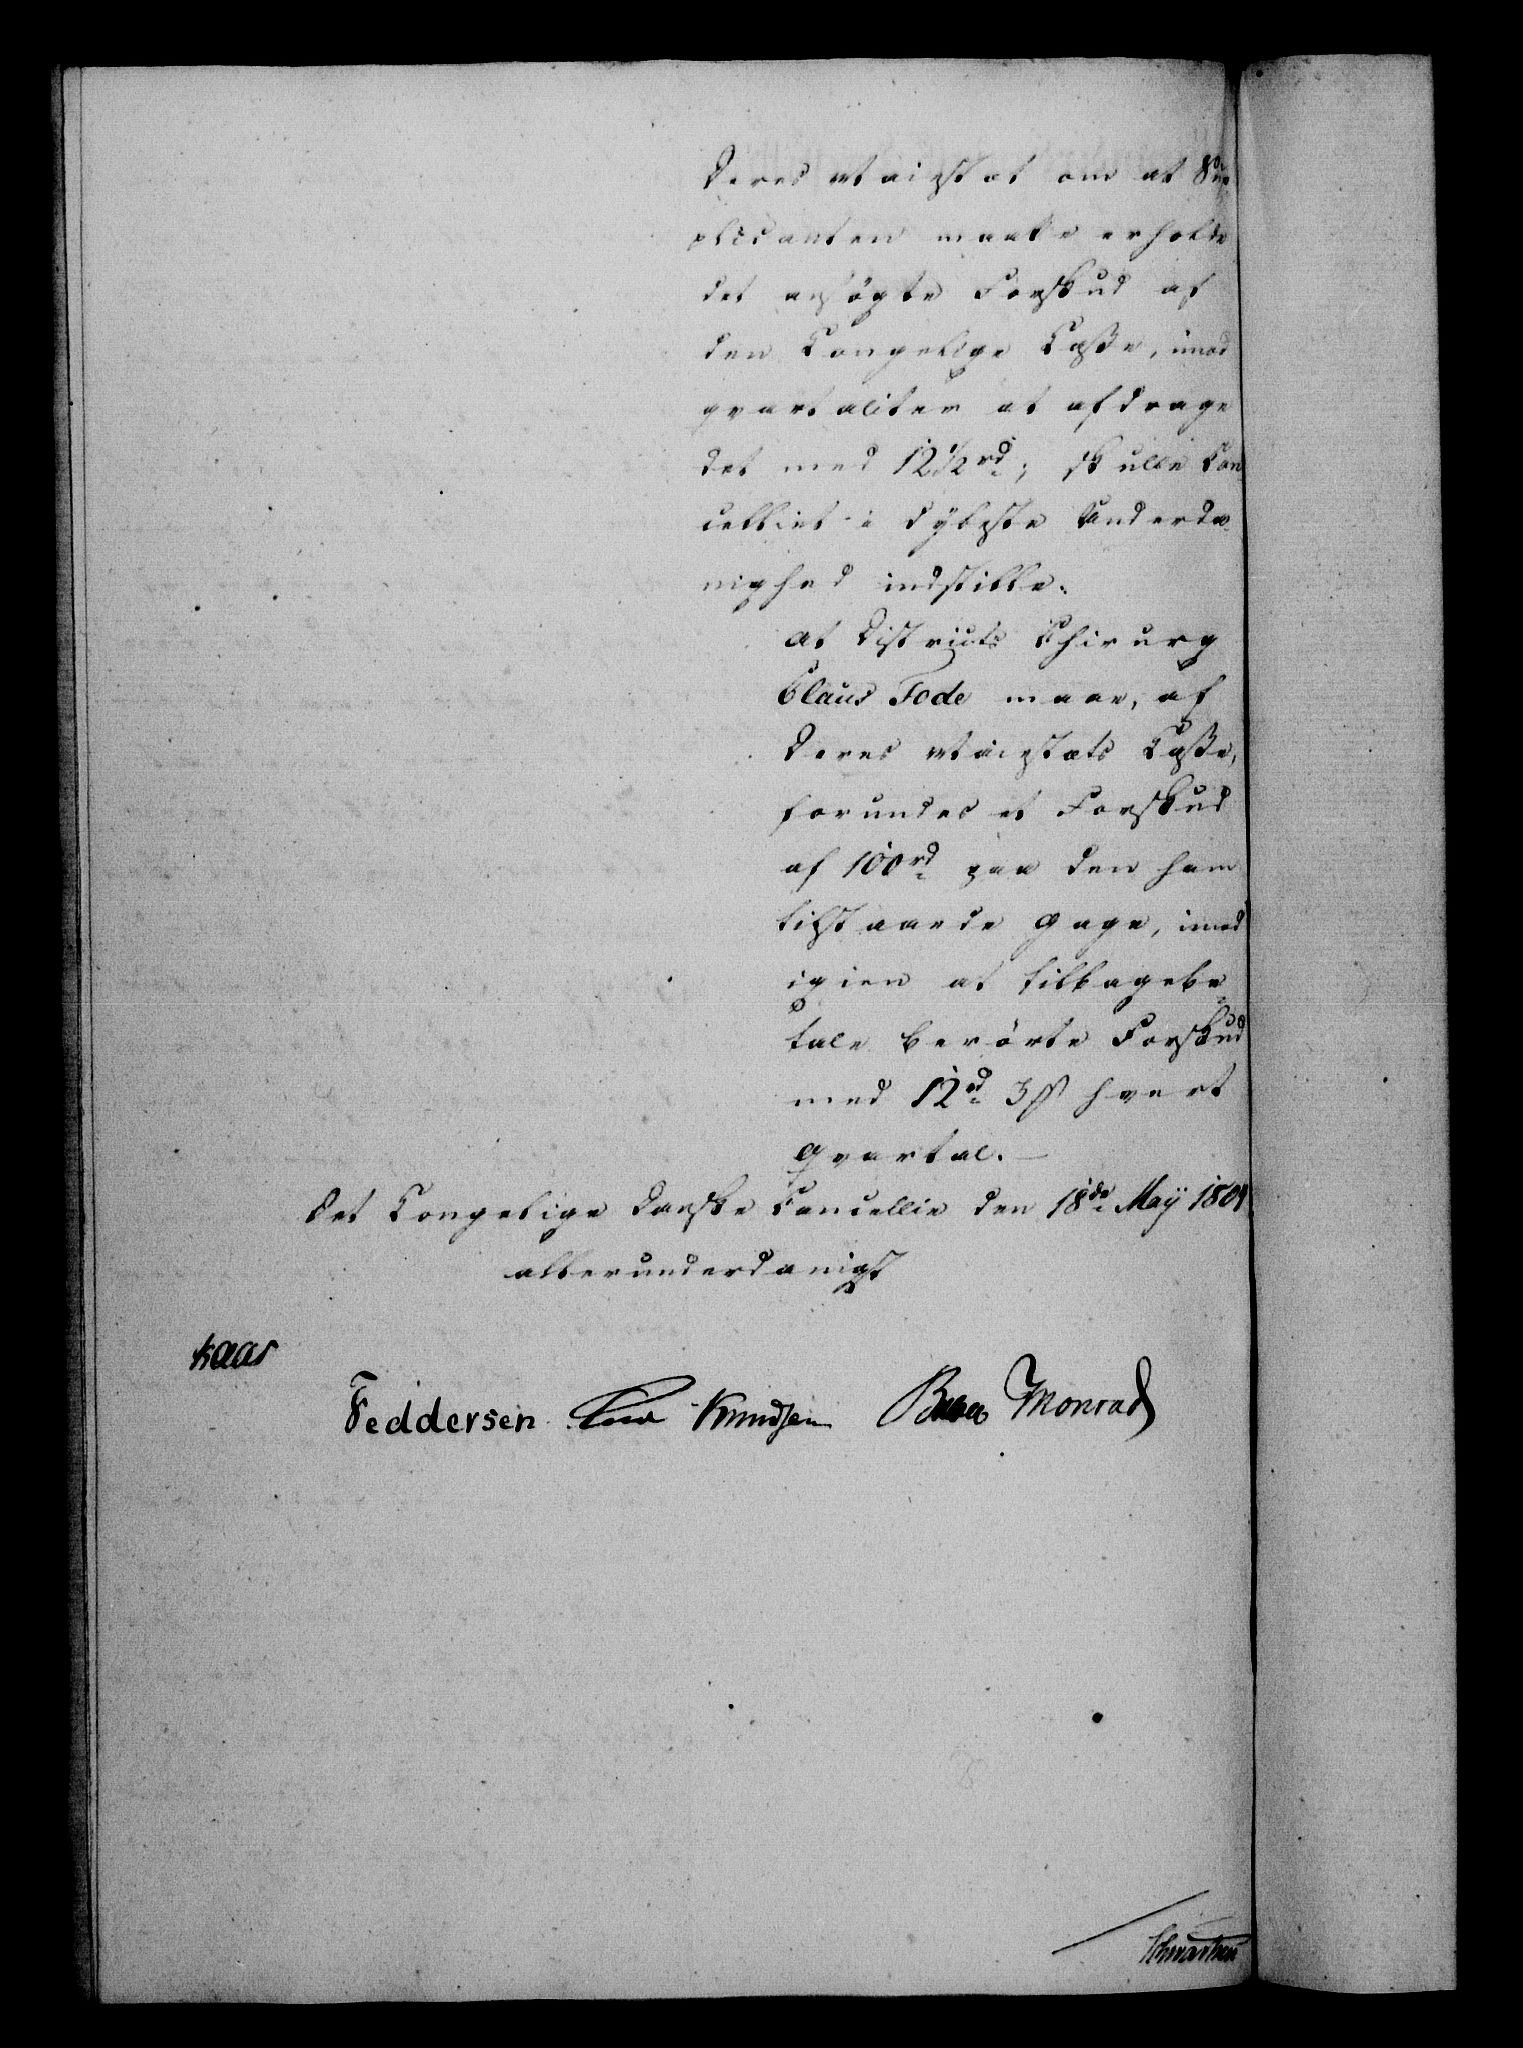 Deres Maiestæt om at Sup
plicanten maatte erholde
det ansøgte Forskud af
den Kongelige Casse, imod
qvartaliter at afdrage
det med 12 1/2 rd; skulle Can
celliet i dybeste Underda-
nighed indstille:
at Districts Chirurg
Claus Tode maae, af
Deres Maiestæts Casse,
forundes et Forskud
af 100 rd paa den ham
tilstaaede Gage, imod
igien at tilbagebe-
tale berørte Forskud
med 12 rd 3 ſſ hvert
Qvartal. —
Det Kongelige Danske Cancellie den 18de May 1804
allerunderdanigst
Kaas
Feddersen Knudsen Monrad